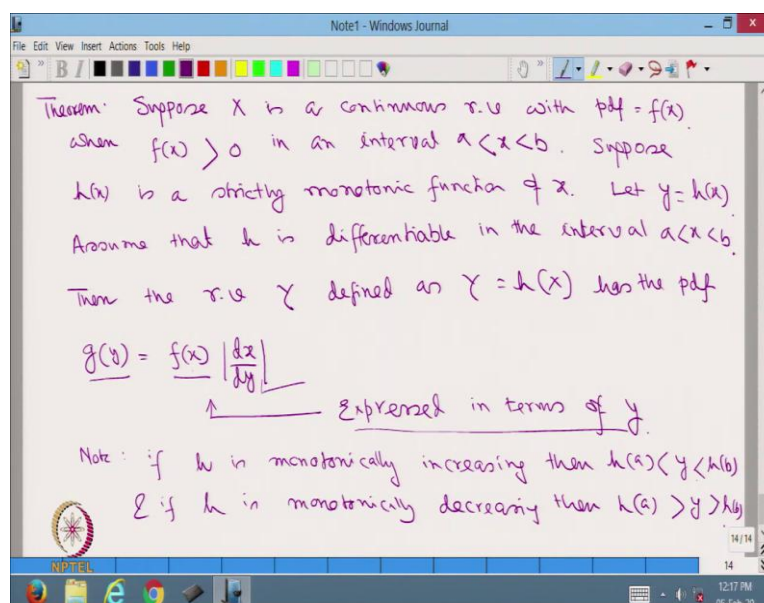 Note1 - Windows Journal
File Edit View Insert Actions Tools Help
Theorem: Suppose X is a continuous r.v with pdf = f(x)
when f(x) > 0 in an interval a < x < b. Suppose
h(x) is a strictly monotonic function of x. Let y = h(x)
Assume that h is differentiable in the interval a < x < b.
Then the r.v Y defined as Y = h(X) has the pdf
g(y) = f(x) |dx/dy|
Expressed in terms of y
Note: if h is monotonically increasing then h(a) < y < h(b)
& if h is monotonically decreasing then h(a) > y > h(b)
14/14
NPTEL
14
12:17 PM